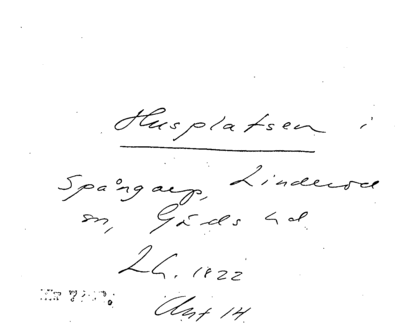 Husplatsen i
Spångarp, Linderöd
sn, Gärds hd
Lh. 1822
Akt 14